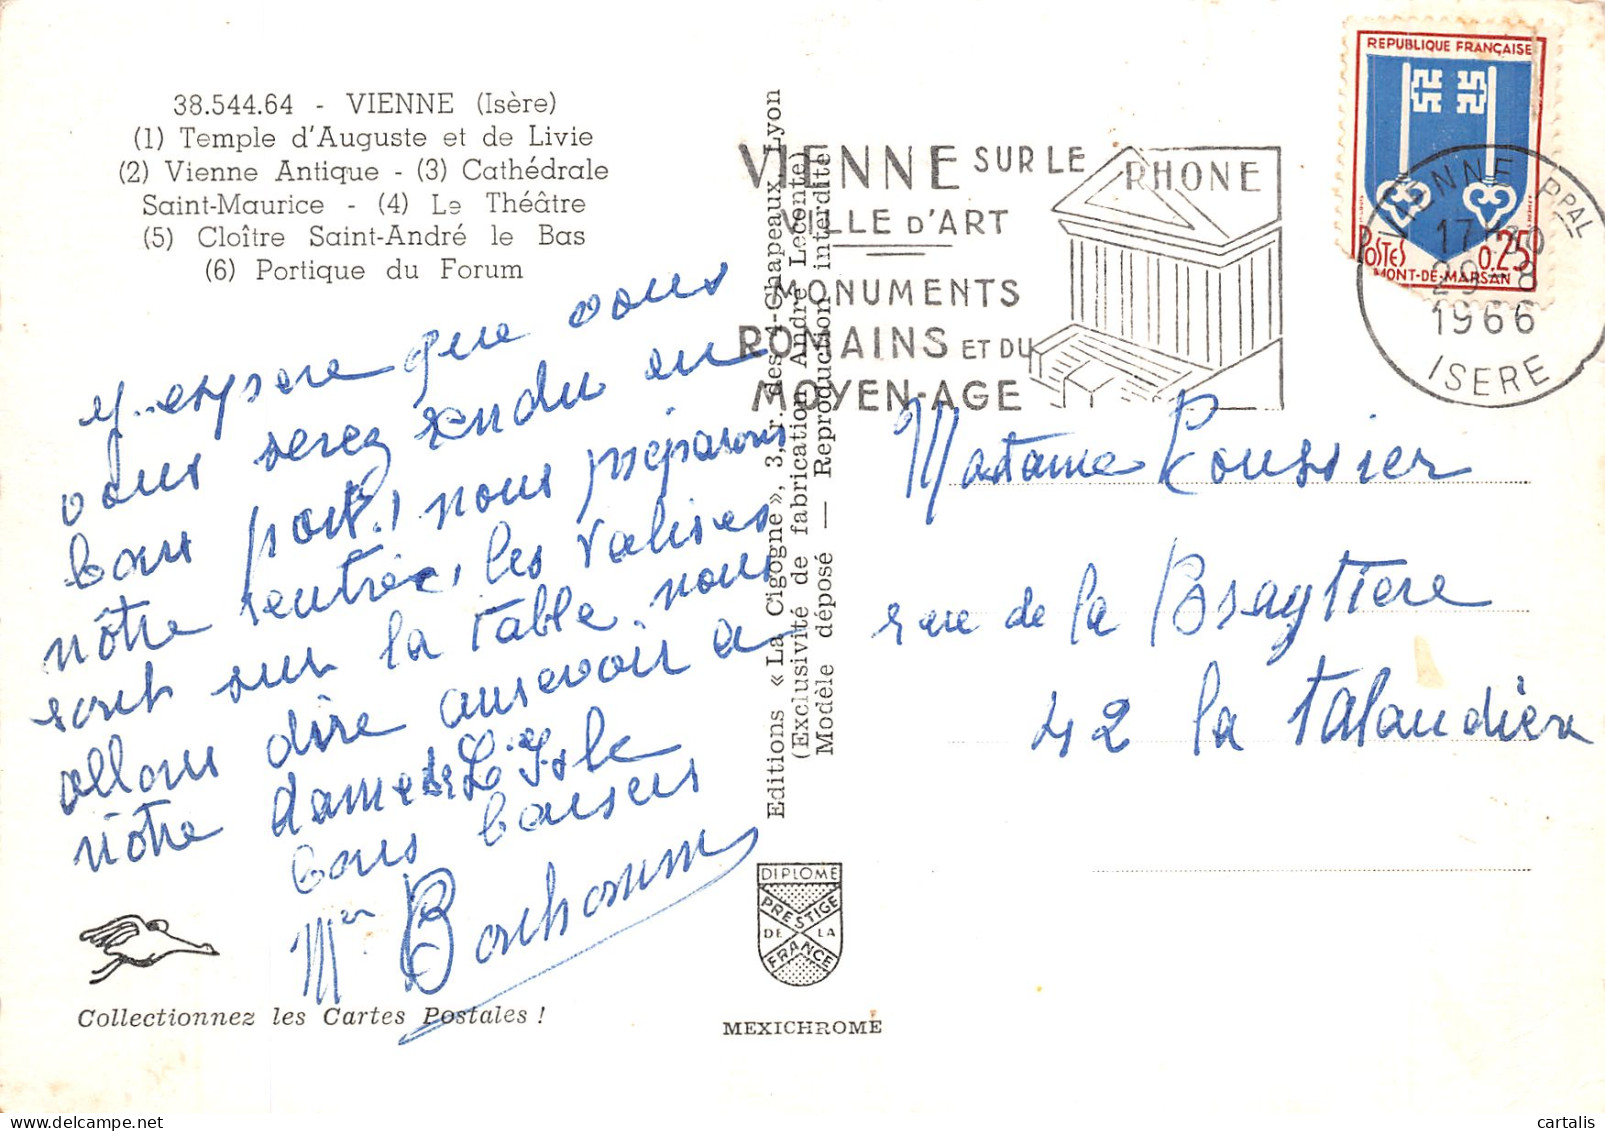 38.544.64 - VIENNE (Isère)
(1) Temple d'Auguste et de Livie
(2) Vienne Antique - (3) Cathédrale
Saint-Maurice - (4) Le Théâtre
(5) Cloître Saint-André le Bas
(6) Portique du Forum
y..espere que vous
vous serez rendu en
bons port., nous préparons
nôtre rentrée, les valises
sont sur la table, nous
allons dire ausevoir a
nôtre dame de L'Isle
bons baisers
Mer Bonhomm
Collectionnez les Cartes Postales !
Editions « La Cigogne », 3, r. des 4-Chapeaux Lyon
(Exclusivité de fabrication André Leconte)
Modèle déposé — Reproduction interdite
DIPLOME
PRESTIGE
DE LA
FRANCE
MEXICHROME
VIENNE SUR LE RHONE
VILLE D'ART
MONUMENTS
ROMAINS ET DU
MOYEN-AGE
REPUBLIQUE FRANÇAISE
POSTES 0.25
MONT-DE-MARSAN
VIENNE PPAL
17-30
29-8
1966
ISERE
Madame Roussier
rue de la Brayttere
42 la talaudière
cartalis